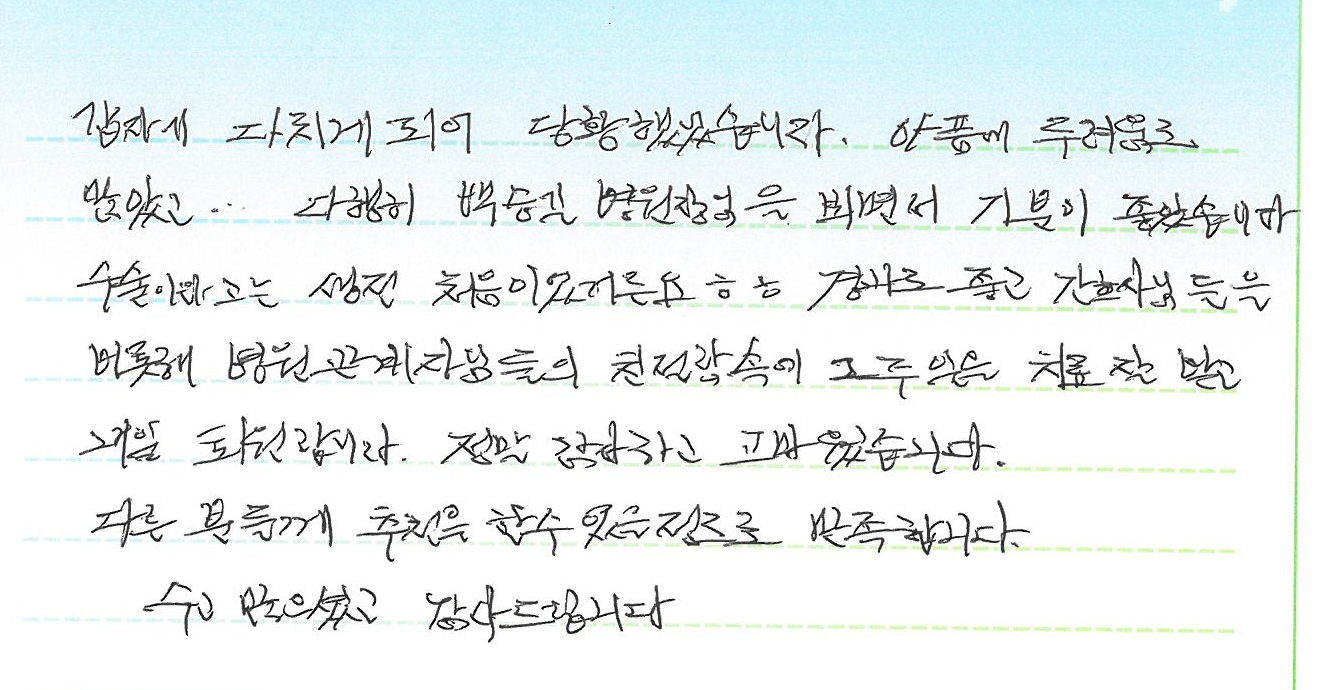 갑자기 다치게 되어 당황했었습니다. 아픔에 두려움도
많았고... 다행히 백승길 병원장님을 뵈면서 기분이 좋았습니다
수술이라고는 생전 처음이었거든요 ㅎㅎ 경과도 좋고 간호사님들을
비롯해 병원관계자님들의 친절함속에 2주 입원 치료 잘 받고
내일 퇴원합니다. 정말 감사하고 고마웠습니다.
다른 분들께 추천을 할수 있을정도로 만족합니다.
수고 많으셨고 감사드립니다